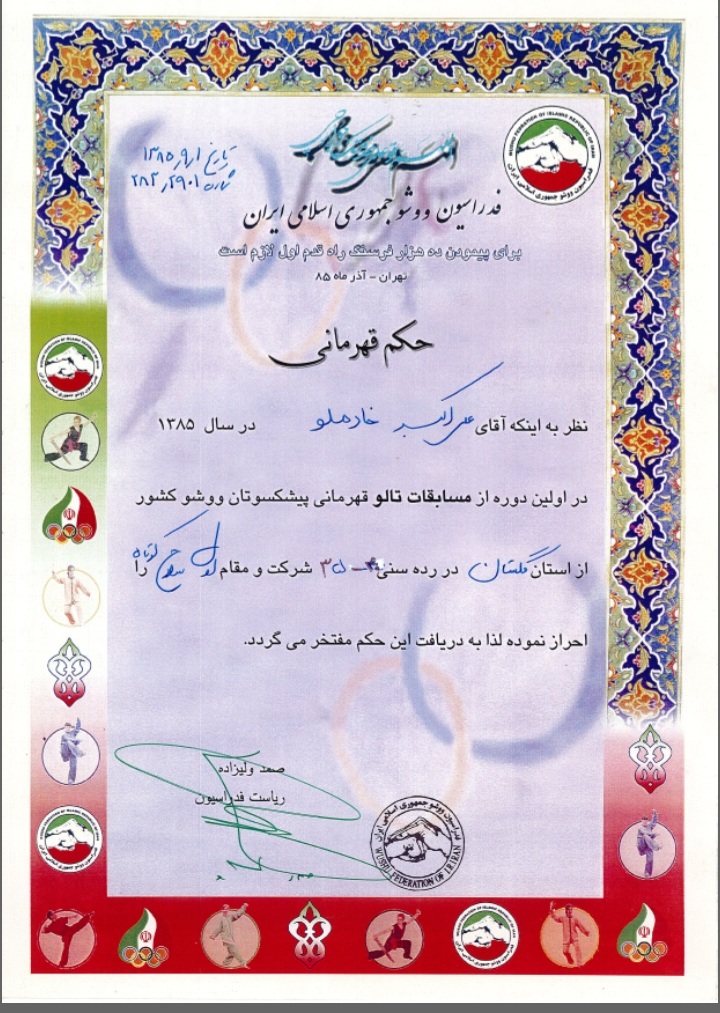 WUSHU FEDERATION OF ISLAMIC REPUBLIC OF IRAN
فدراسیون ووشو جمهوری اسلامی ایران
تاریخ ۱۳۸۵/۹/۱
شماره ۲۸۲/۲۹۰۱
فدراسیون ووشو جمهوری اسلامی ایران
برای پیمودن ده هزار فرسنگ راه قدم اول لازم است
تهران - آذر ماه ۸۵
حکم قهرمانی
نظر به اینکه آقای علی اکبر خادملو در سال ۱۳۸۵
در اولین دوره از مسابقات تالو قهرمانی پیشکسوتان ووشو کشور
از استان گلستان در رده سنی شرکت و مقام اول سلاح کوتاه را
احراز نموده لذا به دریافت این حکم مفتخر می گردد.
صمد ولیزاده
ریاست فدراسیون
فدراسیون ووشو جمهوری اسلامی ایران
WUSHU FEDERATION OF I.R.IRAN